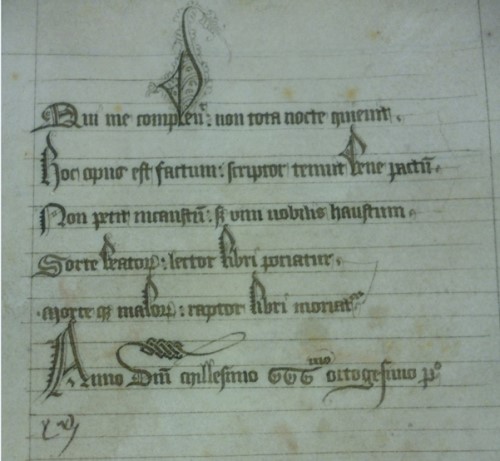 Qui me compleuᵗ: non tota nocte quieuit.
Hoc opus est factum: scriptor tenuit bene pactū.
Non petit incaustū: sꝫ vini nobilis haustum.
Sorte beatorꝝ: lector libri potiatur.
Morte qꝫ malorꝝ: raptor libri moriatᵘʳ
Anno Dn̄i Millesimo CCCᵐᵒ octogesimo pº